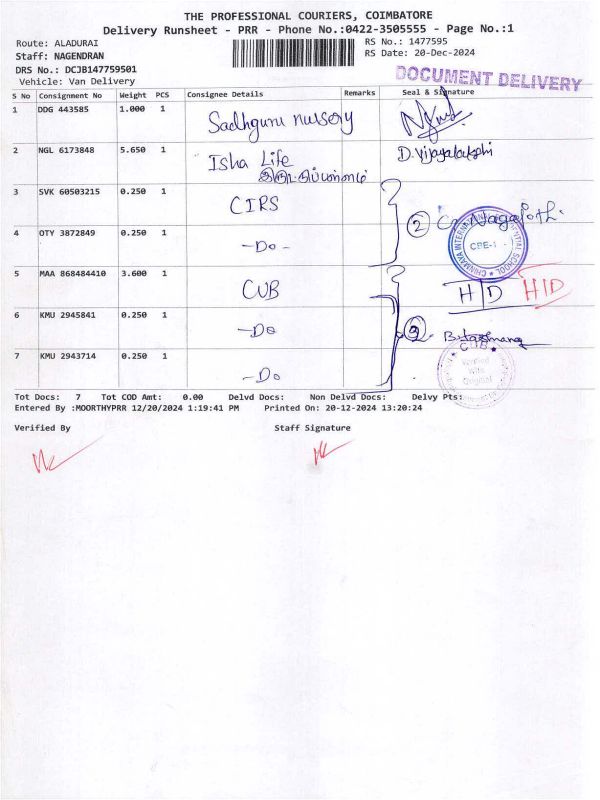 THE PROFESSIONAL COURIERS, COIMBATORE
Delivery Runsheet - PRR - Phone No.:0422-3505555 - Page No.:1
Route: ALADURAI RS No.: 1477595
Staff: NAGENDRAN RS Date: 20-Dec-2024
DRS No.: DCJB147759501
DOCUMENT DELIVERY
Vehicle: Van Delivery
S No Consignment No Weight PCS Consignee Details Remarks Seal & Signature
1 DDG 443585 1.000 1 Sadhguru nursery
2 NGL 6173848 5.650 1 Isha Life D. Vijayalakshi
3 SVK 60503215 0.250 1 CIRS
2
4 OTY 3872849 0.250 1 -Do-
CHINMAYA INTERNATIONAL RESIDENTIAL SCHOOL
CBE-1
5 MAA 868484410 3.600 1 CUB
H|D H|D
6 KMU 2945841 0.250 1 -Do
3
CUB
Verified With Original
7 KMU 2943714 0.250 1 -Do
Tot Docs: 7 Tot COD Amt: 0.00 Delvd Docs: Non Delvd Docs: Delvy Pts:
Entered By :MOORTHYPRR 12/20/2024 1:19:41 PM Printed On: 20-12-2024 13:20:24
Verified By Staff Signature